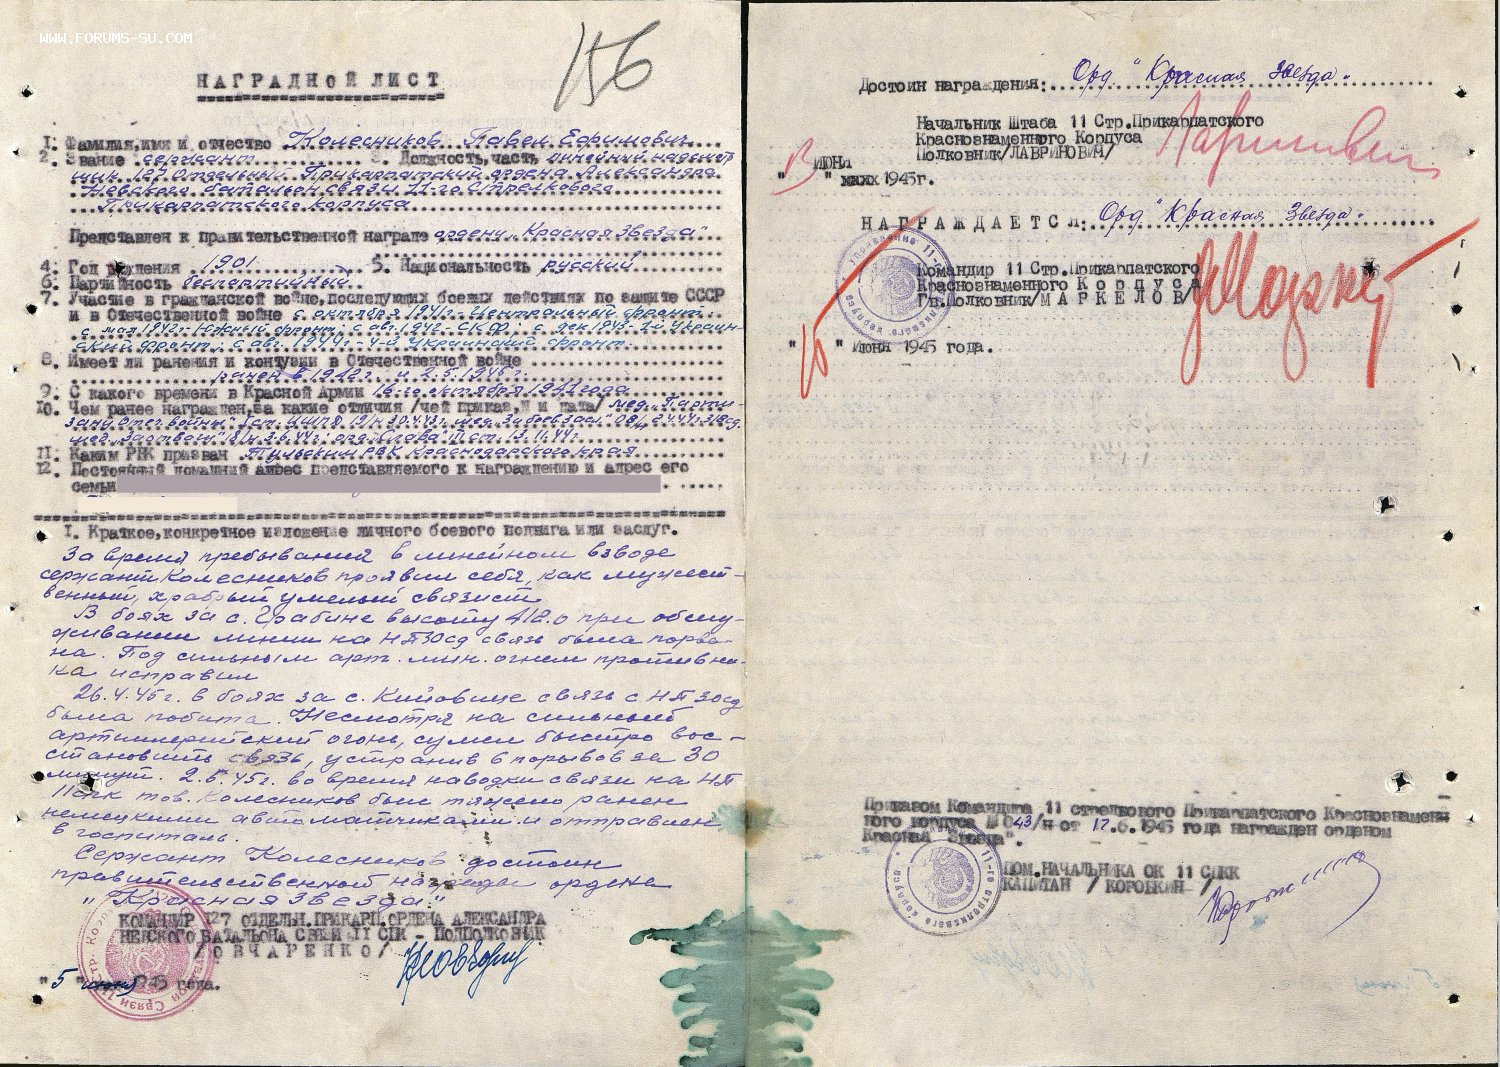 WWW.FORUMS-SU.COM
156
НАГРАДНОЙ ЛИСТ
1. Фамилия, имя и отчество Колесников Павел Ефимович
2. Звание сержант 3. Должность, часть линейный надсмотр
щик 127 Отдельный Прикарпатский ордена Александра
Невского батальон связи 11-го Стрелкового
Прикарпатского корпуса
Представлен к правительственной награде ордену "Красная Звезда"
4. Год рождения 1901 5. Национальность русский
6. Партийность беспартийный
7. Участие в гражданской войне, последующих боевых действиях по защите СССР
и в Отечественной войне с октября 1941г. Центральный фронт
с мая 1942г. Южный фронт; с авг. 1942г. СКФ; с дек 1943- 1-й Украин-
ский фронт; с авг. 1944г - 4-й Украинский фронт.
8. Имеет ли ранения и контузии в Отечественной войне
ранен в 1942г. и 2.5.1945г.
9. С какого времени в Красной Армии 16-го октября 1941 года
10. Чем ранее награжден, за какие отличия /чей приказ, № и дата/ мед. "Парти-
зану Отеч. войны" 30.4.43г. мед. "За боевые засл."
мед. "За отвагу" 3.6.44г; орд. "Слава" 13.11.44г.
11. Каким РВК призван Тульским РВК Краснодарского края
12. Постоянный домашний адрес представляемого к награждению и адрес его
семьи
I. Краткое, конкретное изложение личного боевого подвига или заслуг.
За время пребывания в линейном взводе
сержант Колесников проявил себя, как мужест-
венный, храбрый умелый связист.
В боях за с. Грабине высоту 418.0 при обслу-
живании линии на НП 30сд связь была порва-
на. Под сильным арт. мин. огнем противни-
ка исправил
26.4.45г. в боях за с. Кийовице связь с НП 30сд
была побита. Несмотря на сильный
артиллерийский огонь, сумел быстро вос-
становить связь, устранив 6 порывов за 30
минут. 2.5.45г. во время наводки связи на НП
11спк тов. Колесников был тяжело ранен
немецкими автоматчиками и отправлен
в госпиталь.
Сержант Колесников достоин
правительственной награды ордена
"Красная Звезда"
КОМАНДИР 127 ОТДЕЛЬН. ПРИКАРП. ОРДЕНА АЛЕКСАНДРА
НЕВСКОГО БАТАЛЬОНА СВЯЗИ 11 СПК - ПОДПОЛКОВНИК
/ОВЧАРЕНКО/
"5" июня 1945 года.
Достоин награждения: Орд. "Красная Звезда".
Начальник Штаба 11 Стр.Прикарпатского
Краснознаменного Корпуса
Полковник /ЛАВРИНОВИЧ/
июня
" " 1945г.
НАГРАЖДАЕТСЯ: Орд "Красная Звезда".
Командир 11 Стр.Прикарпатского
Краснознаменного Корпуса
Гв.Полковник /МАРКЕЛОВ/
"10" Июня 1945 года.
Приказом Командира 11 стрелкового Прикарпатского Краснознамен-
ного корпуса № 043/н от 12.6.1945 года награжден орденом
"Красная Звезда".
ПОМ.НАЧАЛЬНИКА ОК 11 СПКК
КАПИТАН /КОРОВКИН/